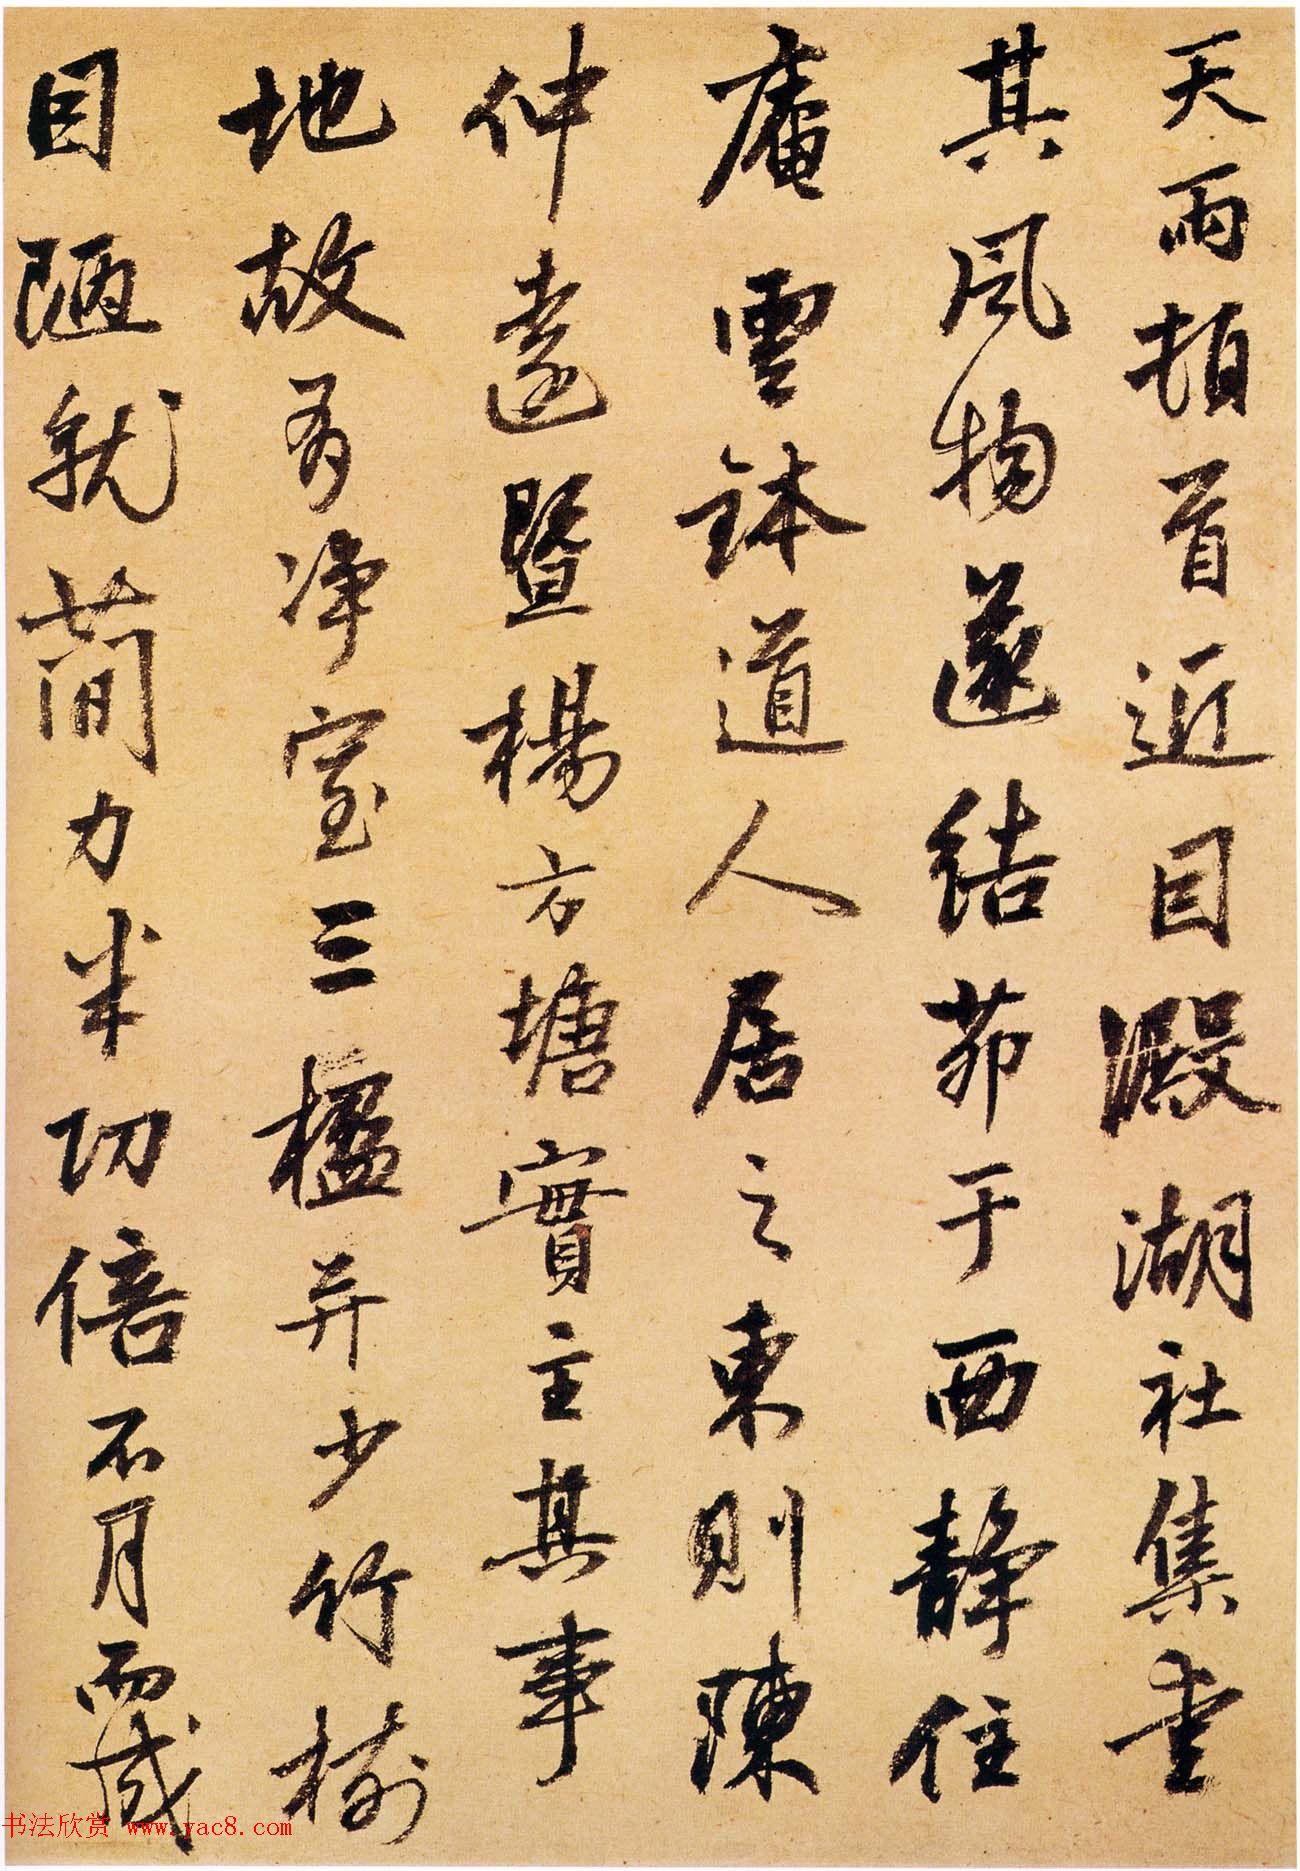 天雨頓首近因澱湖社集愛
其風物遂結茆于西靜住
庵雲鉢道人居之東則陳
仲遠暨楊方塘實主其事
地故有淨室三楹并少竹樹
因陋就簡力半功倍不月而成
书法欣赏 www.yac8.com